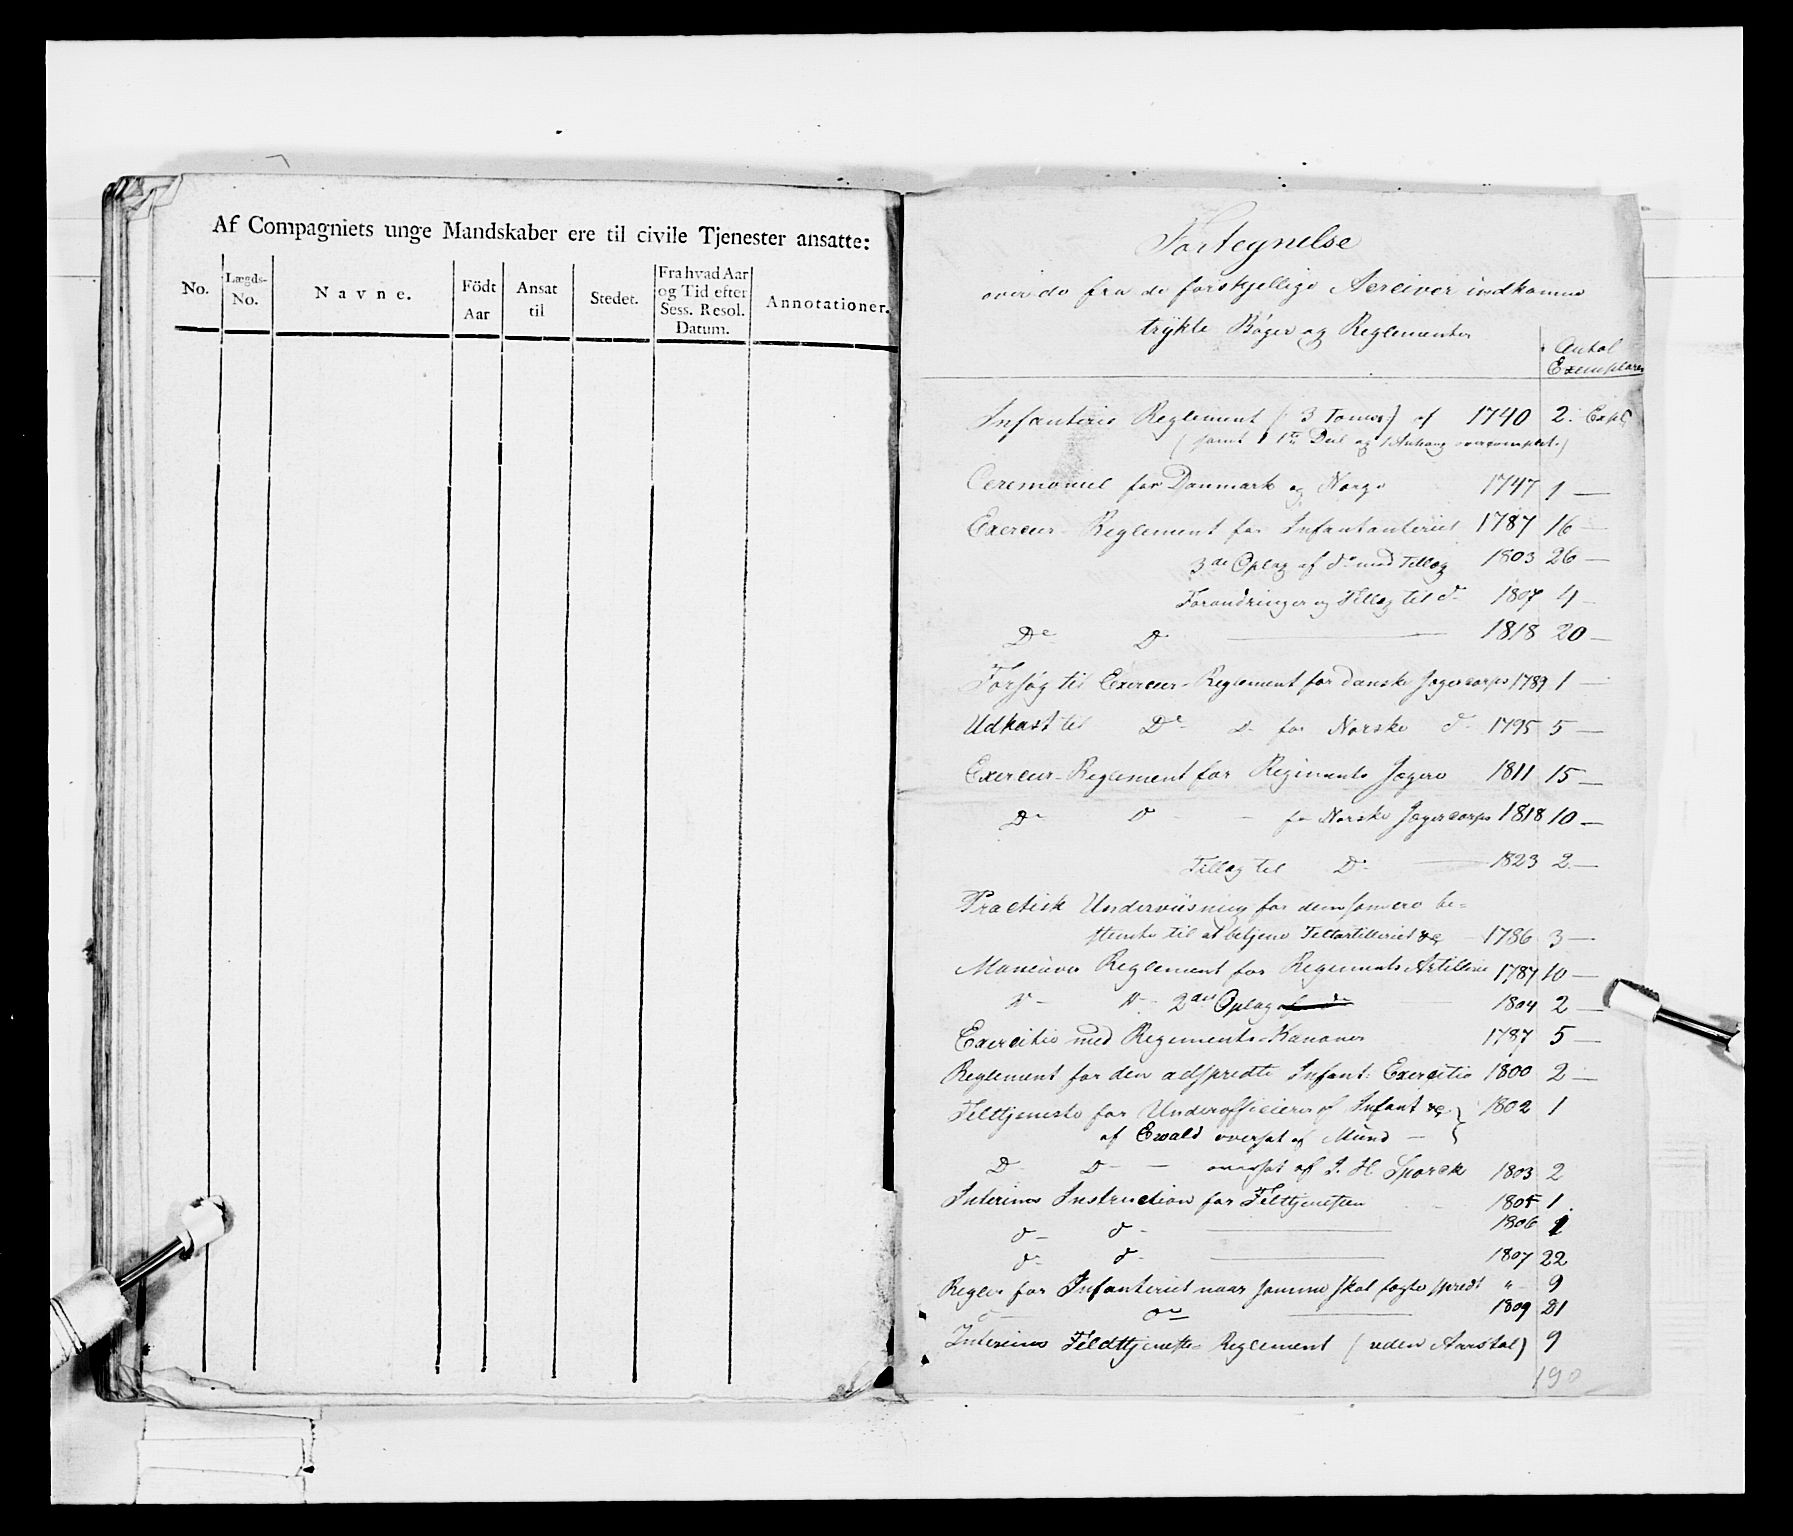 Af Compagniets unge Mandskaber ere til civile Tjenester ansatte:
No.
Lægds-
No.
Navne.
Födt
Aar
Ansat
til
Stedet.
Fra hvad Aar
og Tid efter
Sess. Resol.
Datum.
Annotationer.
Fortegnelse
over de fra de forskjellige Arciver indkomne
trykte Bøger og Reglementer
Antal
Exemplarer
Infanterie Reglement (3 Tomer) af 1740 2. Expl
(samt 1 1te Deel og 1 Anhang overcomplet.)
Ceremoniel for Danmark og Norge 1747 1 —
Exerceer-Reglement for Infantanteriet 1787 16 —
3de Oplag af do med Tillæg 1803 26 —
Forandringer og Tillæg til do 1807 4 —
Do Do — 1818 20 —
Forsøg til Exerceer-Reglement for danske Jægercorps 1789 1 —
Udkast til Do do for Norske do 1795 5 —
Exerceer-Reglement for Regiments Jægere 1811 15 —
Do do — for Norske Jægercorps 1818 10 —
Tillæg til Do — 1823 2 —
Practisk Underviisning for dem som ere be=
stemte til at betjene Feltartilleriet &c 1786 3 —
Maneuver Reglement for Regiments Artillerie 1787 10 —
do do 2det Oplag af do — 1804 2 —
Exercitie med Regiments-Kanoner 1787 5 —
Reglement for den adspredte Infant: Exercitie 1800 2 —
Felttjeneste for Underofficierer af Infant &c } 1802 1
af Ewald oversat af Mûnd —
Do Do — oversat af J. H. Sporck 1803 2
Interims Instruction for Felttjenesten 1805 1.
do do — 1806 1
do do — 1807 22
Regler for Infanteriet naar samme skal fægte spredt " 9
do do — 1809 21
Interims Feldttjeneste-Reglement (uden Aarstal) 9
190